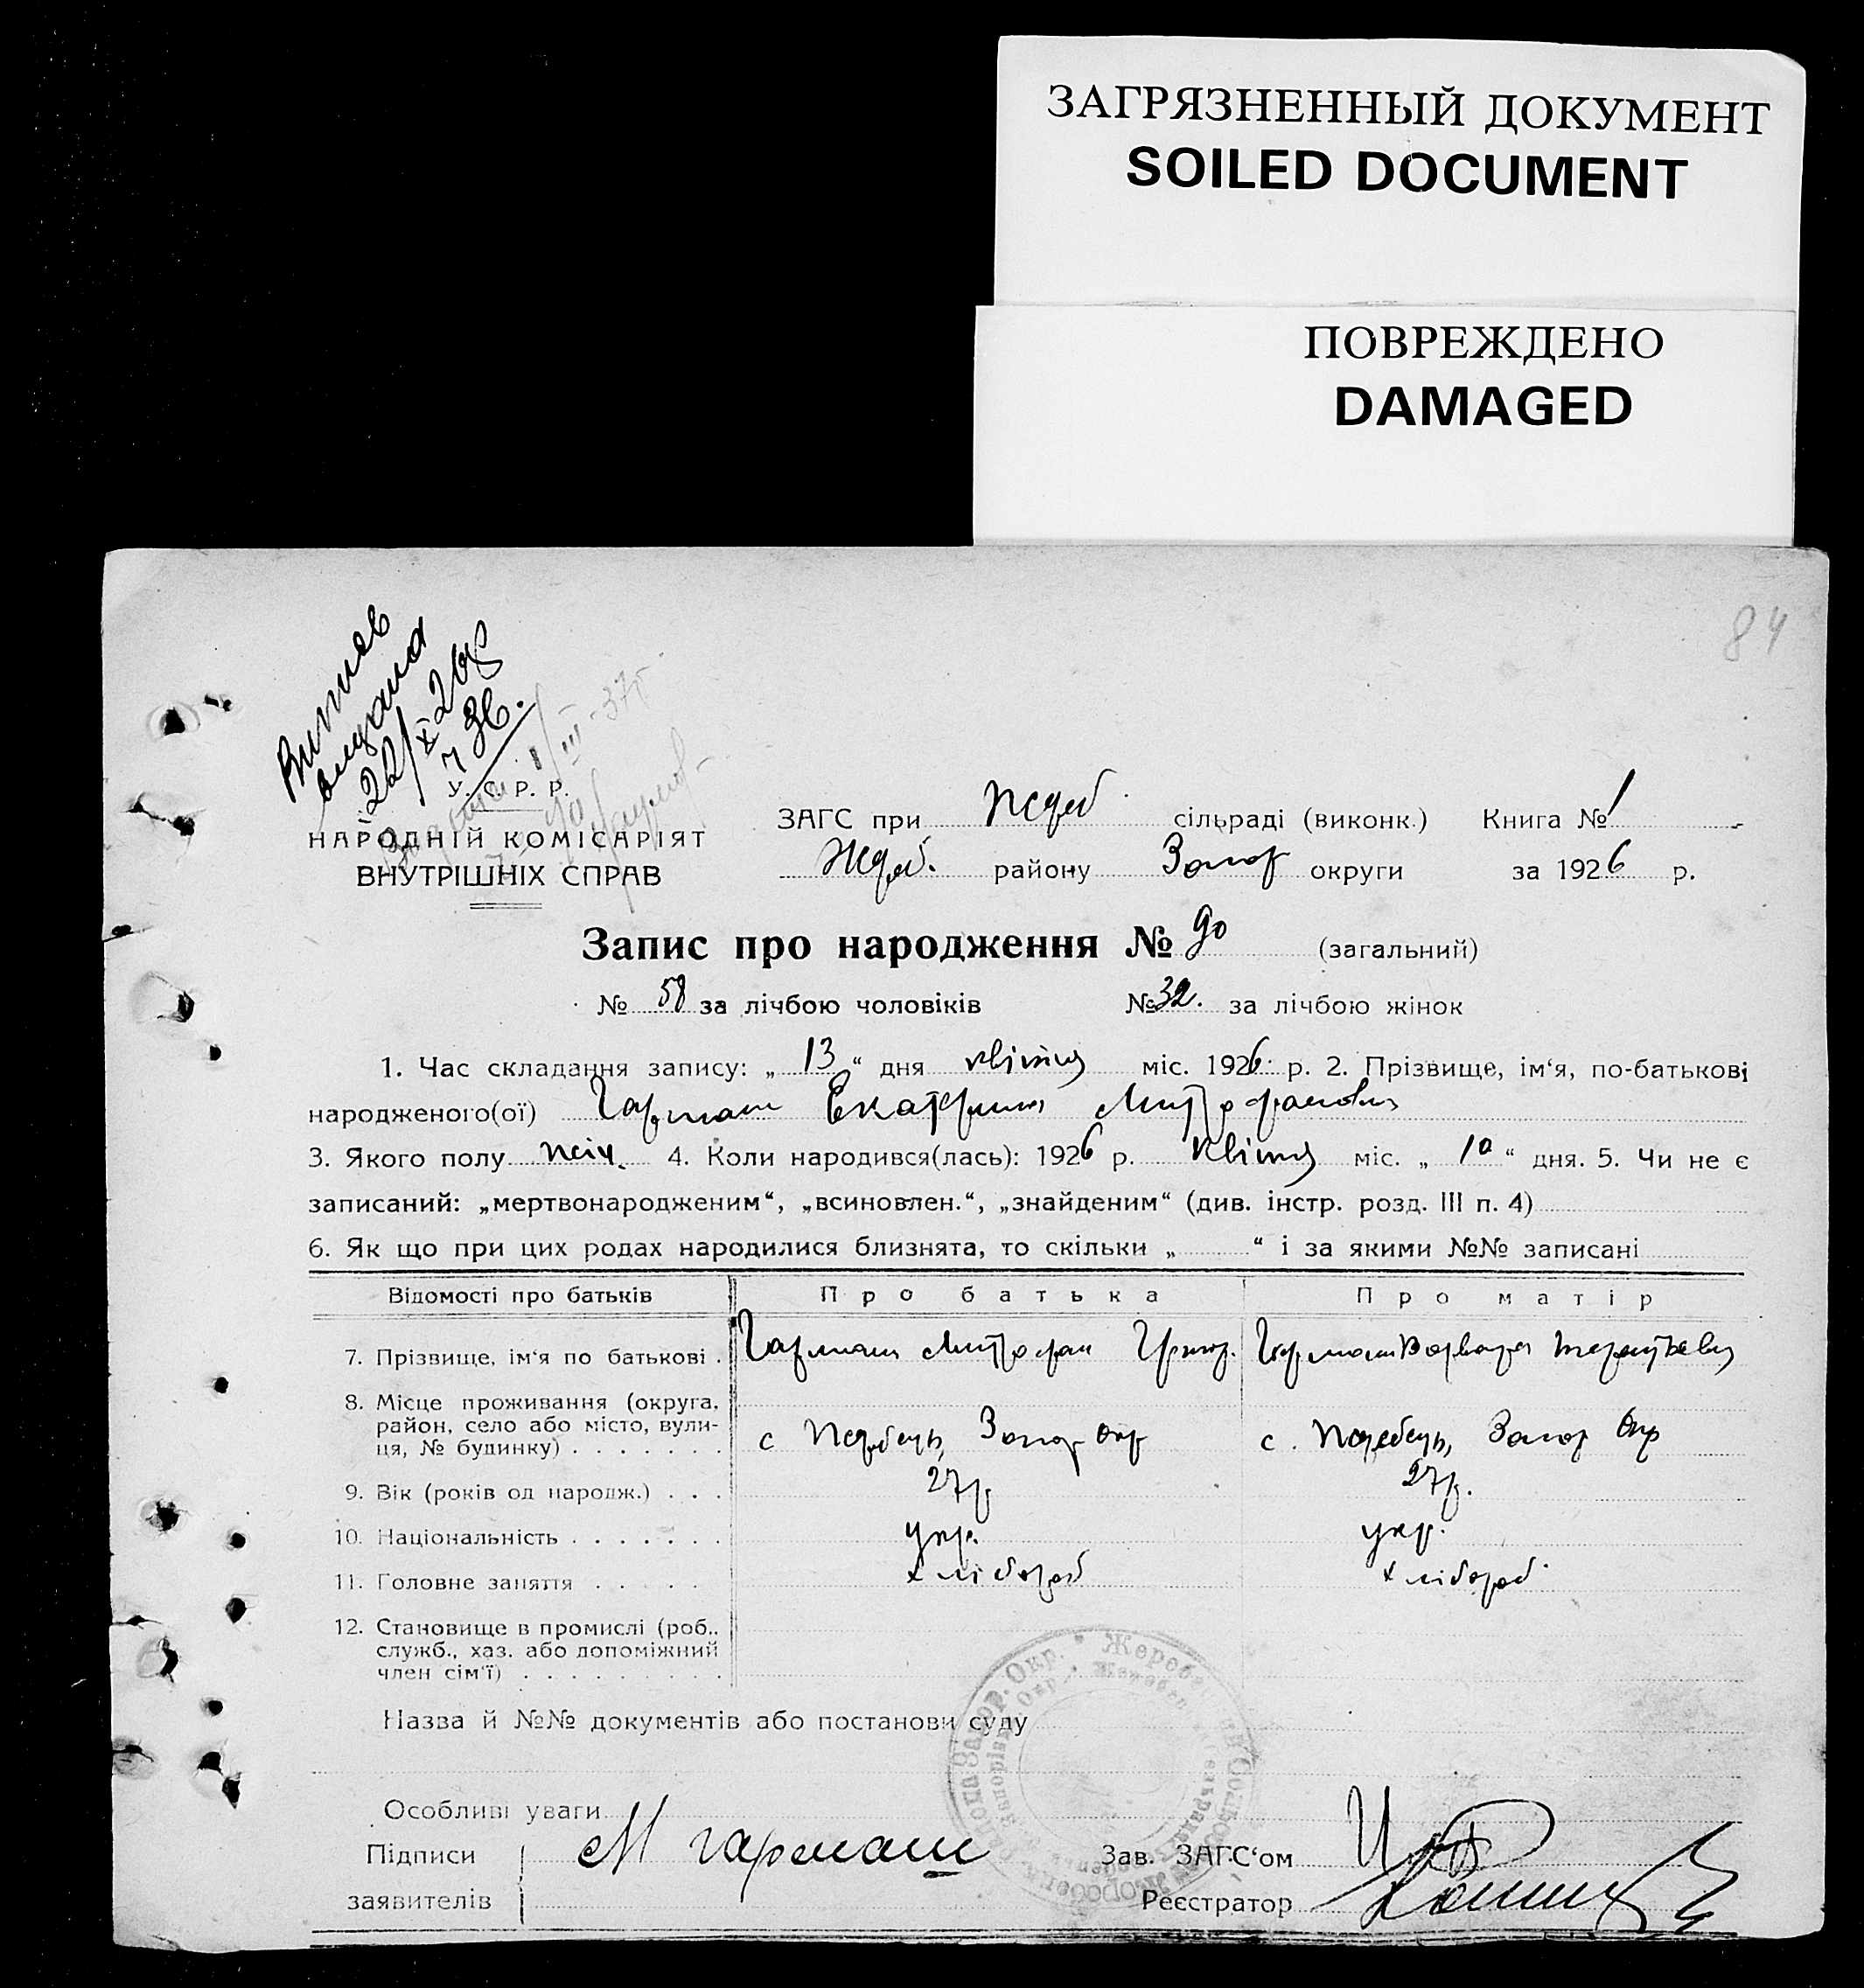 ЗАГРЯЗНЕННЫЙ ДОКУМЕНТ
SOILED DOCUMENT
ПОВРЕЖДЕНО
DAMAGED
84
22/X
У. С. Р. Р.
НАРОДНІЙ КОМІСАРІЯТ
ВНУТРІШНІХ СПРАВ
ЗАГС при Жереб сільраді (виконк.) Книга № 1
Жереб. району Запор округи за 1926 р.
Запис про народження № 90 (загальний)
№ 58 за лічбою чоловіків № 32. за лічбою жінок
1. Час складання запису: „ 13 “ дня квітня міс. 1926 р. 2. Прізвище, ім‘я, по-батькові
народженого(ої) Гармаш Екатерина Митрофановна
3. Якого полу жіч. 4. Коли народився(лась): 1926 р. квітня міс. „ 10 “ дня. 5. Чи не є
записаний: „мертвонародженим“, „всиновлен.“, „знайденим“ (див. інстр. розд. III п. 4)
6. Як що при цих родах народилися близнята, то скільки „ “ і за якими №№ записані
Відомості про батьків Про батька Про матір
7. Прізвище, ім‘я по батькові . Гармаш Митрофан Григор. Гармаш Варвара
8. Місце проживання (округа,
район, село або місто, вули-
ця, № будинку) . . . . . . . с Жеребець, Запор окр с. Жеребець, Запор Окр
9. Вік (років од народж.) . . . 27 р. 27 р.
10. Національність . . . . . . . укр. укр.
11. Головне заняття . . . . . хлібороб хлібороб
12. Становище в промислі (роб.,
служб., хаз. або допоміжний
член сім‘ї) . . . . . . . . .
Назва й №№ документів або постанови суду
Особливі уваги
Підписи М гармаш Зав. ЗАГС‘ом
заявителів Реєстратор